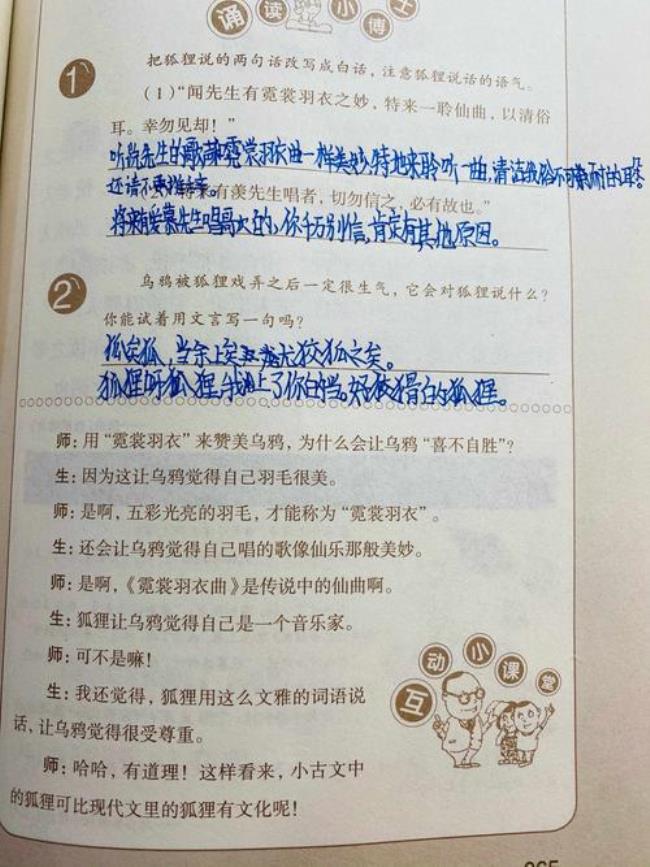 诵读小博士
1
把狐狸说的两句话改写成白话，注意狐狸说话的语气。
（1）“闻先生有霓裳羽衣之妙，特来一聆仙曲，以清俗
耳。幸勿见却！”
听说先生的歌声和霓裳羽衣曲一样美妙,特地来聆听一曲,清洁我俗不可耐的耳朵。
还请不要推辞。
来有羡先生唱者，切勿信之，必有故也。”
将来有羡慕先生唱哥大的,你千万别信,肯定有其他原因。
2
乌鸦被狐狸戏弄之后一定很生气，它会对狐狸说什么？
你能试着用文言写一句吗？
狐矣狐,当余上矣狡狐之矣。
狐狸呀狐狸,我上了你的当。好狡猾的狐狸。
师：用“霓裳羽衣”来赞美乌鸦，为什么会让乌鸦“喜不自胜”？
生：因为这让乌鸦觉得自己羽毛很美。
师：是啊，五彩光亮的羽毛，才能称为“霓裳羽衣”。
生：还会让乌鸦觉得自己唱的歌像仙乐那般美妙。
师：是啊，《霓裳羽衣曲》是传说中的仙曲啊。
生：狐狸让乌鸦觉得自己是一个音乐家。
师：可不是嘛！
互动小课堂
生：我还觉得，狐狸用这么文雅的词语说
话，让乌鸦觉得很受尊重。
师：哈哈，有道理！这样看来，小古文中
的狐狸可比现代文里的狐狸有文化呢！